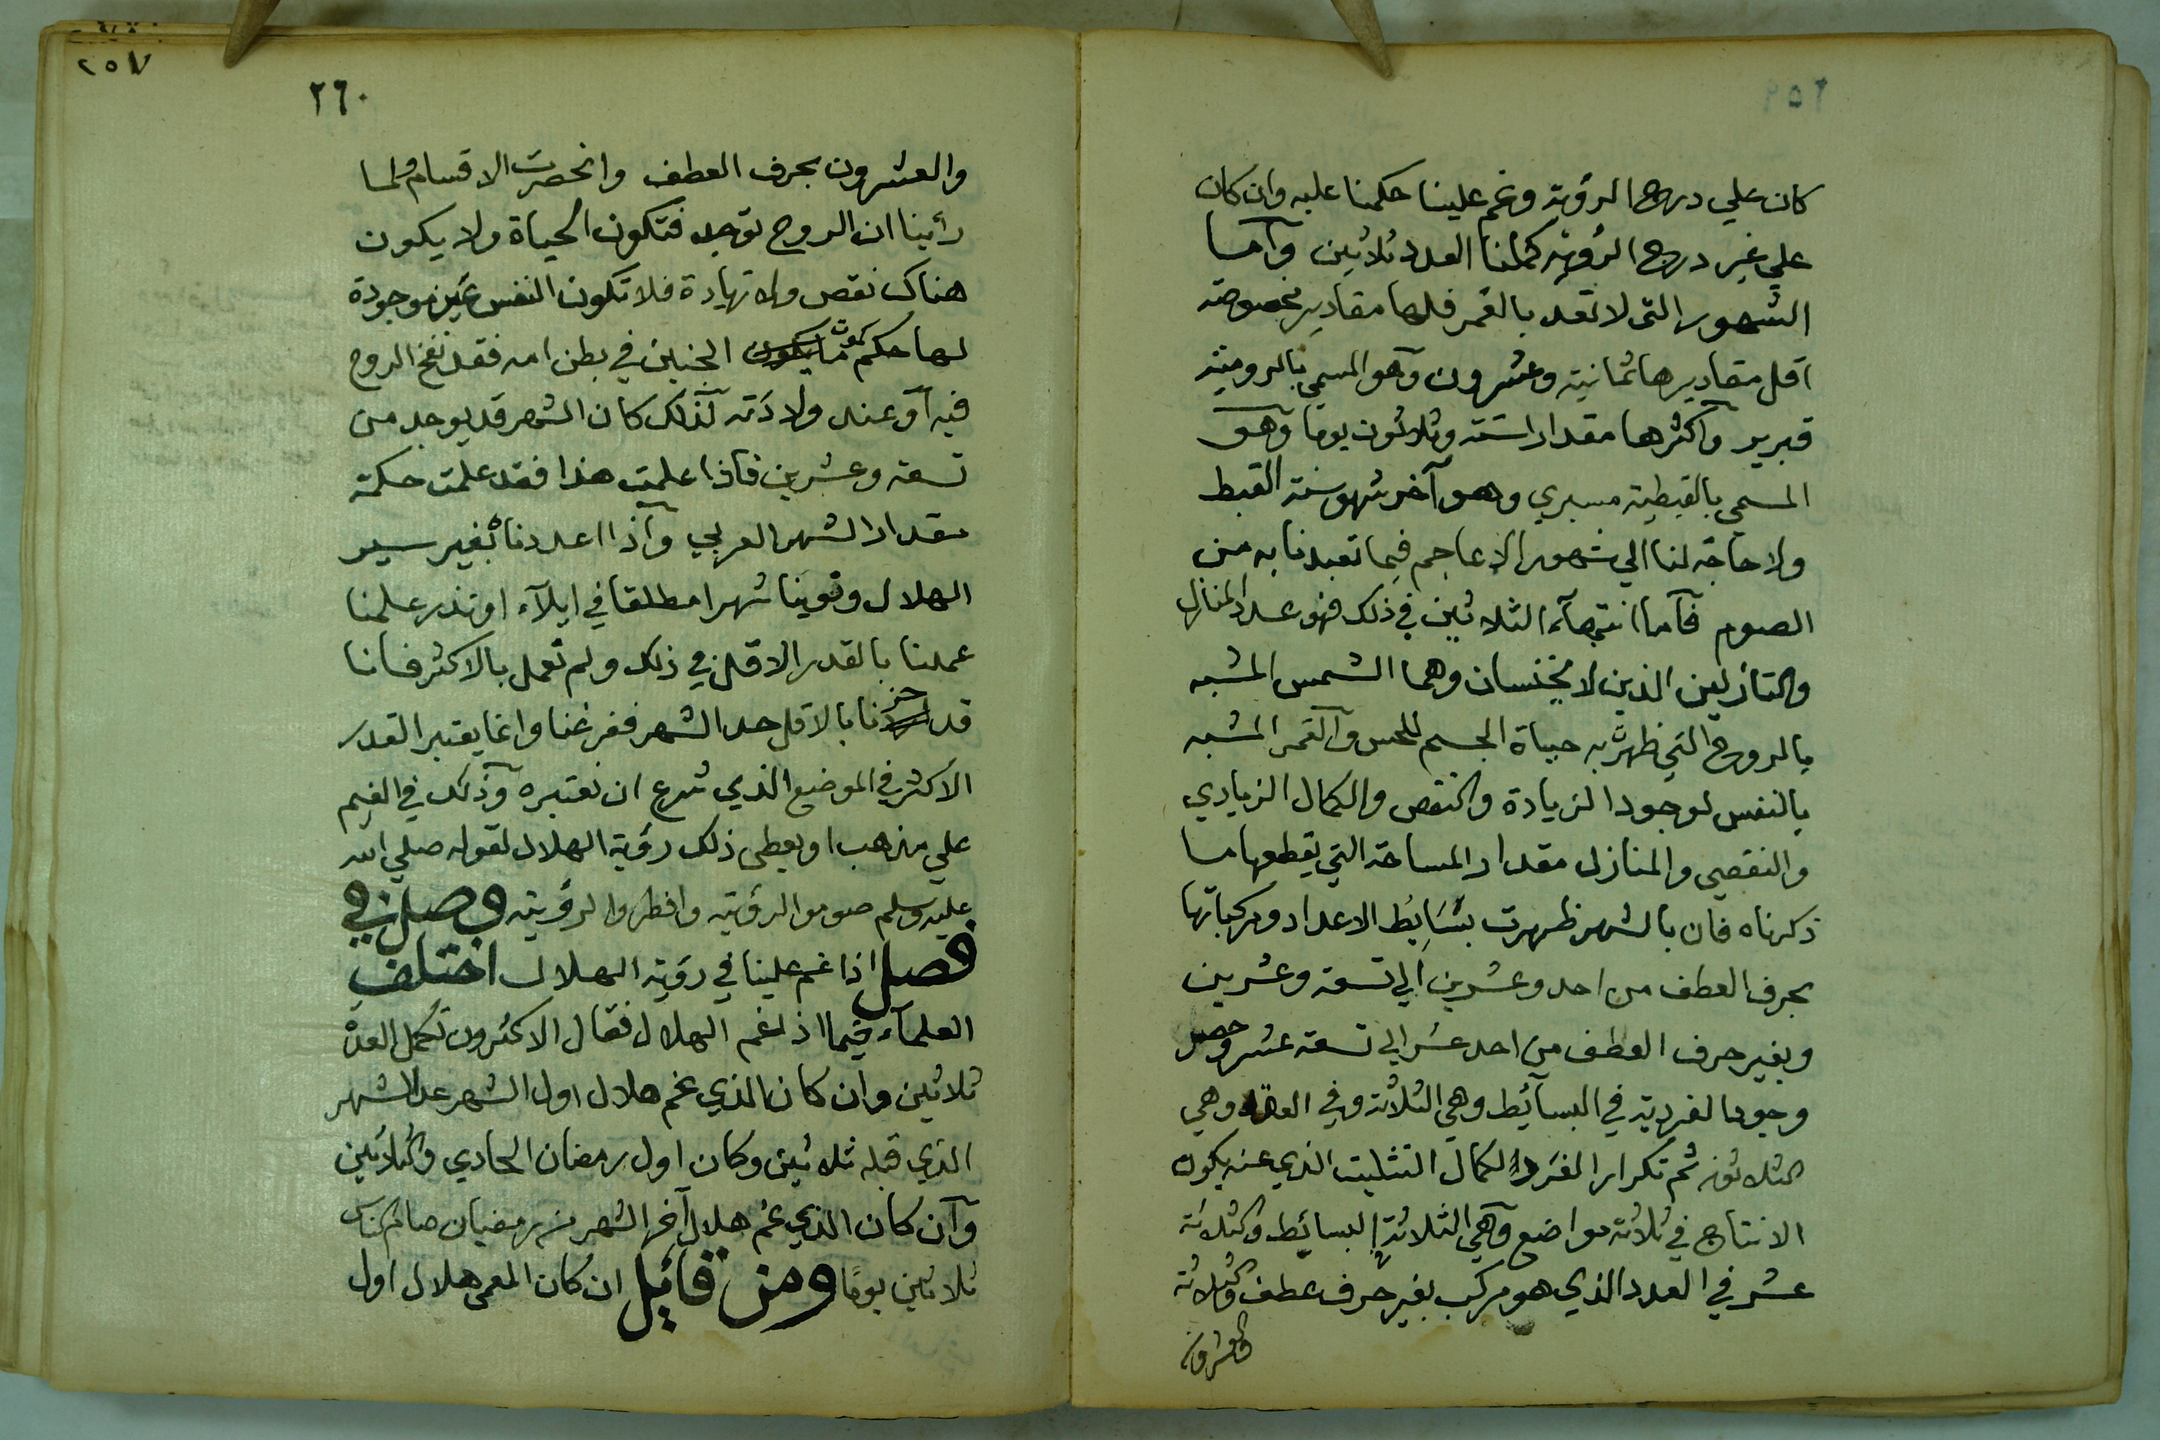 ٢٥٩
كان علي درج الرؤية وغم علينا حكمنا عليه وان كان
علي غير درج الرؤية كملنا العدد ثلاثين وآما
الشهور التي لا تعد بالقمر فلها مقادير مخصوصة
اقل مقاديرها ثمانية وعشرون وهو المسمي بالرومية
فبرير وآكثرها مقدارا ستة وثلاثون يوما وهو
المسمي بالقبطية مسري وهو آخر شهور سنة القبط
ولا حاجة لنا الي شهور الاعاجم فيما تعبدنا به من
الصوم فآما انتهآء الثلاثين في ذلك فهو عدد المنازل
والنازلين الذين لا يخنسان وهما الشمس المشبه
بالروح التي ظهرت به حياة الجسم للحس والقمر المشبه
بالنفس لوجود الزيادة والنقص والكمال الزيادي
والنقصي والمنازل مقدار المساحة التي يقطعها ما
ذكرناه فان بالشهر ظهرت بسَايُط الاعداد ومركباتها
بحرف العطف من احد وعشرين الي تسعة وعشرين
وبغير حرف العطف من احد عشر الي تسعة عشر وحصر
وجود الفردية في البسآئط وهي الثلاثة وفي العقد وهي
الثلاثون ثم تكرار الفرد لكمال التثليث الذي عنه يكون
الانتاج في ثلاثة مواضع وهي الثلاثة البسائط وثلاثة
عشر في العدد الذي هو مركب بغير حرف عطف وثلاثة
والعشرون
٢٥٧
٢٦٠
والعشرون بحرف العطف وانحصرت الاقسام ولما
رأينا ان الروح توجد فتكون الحياة ولا يكون
هناك نقص ولا زيادة فلا تكون النفس عين موجودة
لها حكم كموت ما يكون الجنين في بطن امه فقد نفخ الروح
فيه آو عند ولادَته لذلك كان الشهر قد يوجد من
تسعة وعشرين فاذا علمت هذا فقد علمت حكمة
مقدار الشهر العربي وآذا اعددناه بغير سير
الهلال ونوينا شهرا مطلقا في ايلآء او نذر علمنا
عملنا بالقدر الاقل في ذلك ولم نعمل بالاكثر فانا
قد حزنا بالاقل حد الشهر ففرغنا وانما يعتبر القدر
الاكثر في الموضع الذي شرع ان نعتبره وذلك في الغيم
علي مذهب او يعطي ذلك رؤية الهلال لقوله صلي الله
عليه وسلم صوموا لرؤيته وافطروا لرؤيته وصل في
فصل اذا غم علينا في رؤية الهلال اختلف
العلمآء فيما اذا غم الهلال فقال الاكثرون تكمل العدة
ثلاثين وان كان الذي غم هلال اول الشهر عد الشهر
الذي قبله ثلاثين وكان اول رمضان الحادي والثلاثين
وآن كان الذي غم هلال آخر الشهر من رمضان صام الناس
ثلاثين يومًا ومن قائل ان كان المغمى هلال اول